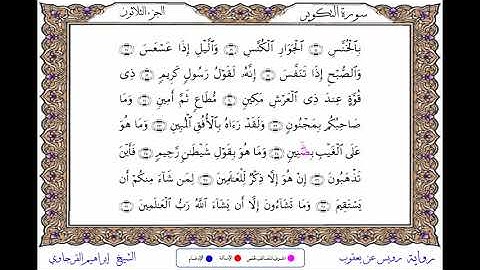 سورة التكوير
الجزء الثلاثون
بِالْخُنَّسِ ۝ الْجَوَارِ الْكُنَّسِ ۝ وَالَّيْلِ إِذَا عَسْعَسَ ۝
وَالصُّبْحِ إِذَا تَنَفَّسَ ۝ إِنَّهُۥ لَقَوْلُ رَسُولٍ كَرِيمٍ ۝ ذِى
قُوَّةٍ عِندَ ذِى الْعَرْشِ مَكِينٍ ۝ مُّطَاعٍ ثَمَّ أَمِينٍ ۝ وَمَا
صَاحِبُكُم بِمَجْنُونٍ ۝ وَلَقَدْ رَءَاهُ بِالْأُفُقِ الْمُبِينِ ۝ وَمَا هُوَ
عَلَى الْغَيْبِ بِظَنِينٍ ۝ وَمَا هُوَ بِقَوْلِ شَيْطَٰنٍ رَّجِيمٍ ۝ فَأَيْنَ
تَذْهَبُونَ ۝ إِنْ هُوَ إِلَّا ذِكْرٌ لِّلْعَٰلَمِينَ ۝ لِمَن شَآءَ مِنكُمْ أَن
يَسْتَقِيمَ ۝ وَمَا تَشَآءُونَ إِلَّا أَن يَشَآءَ اللَّهُ رَبُّ الْعَٰلَمِينَ ۝
رواية رويس عن يعقوب
الإمالة
الإدغام
الشيخ إبراهيم الفرجاوي